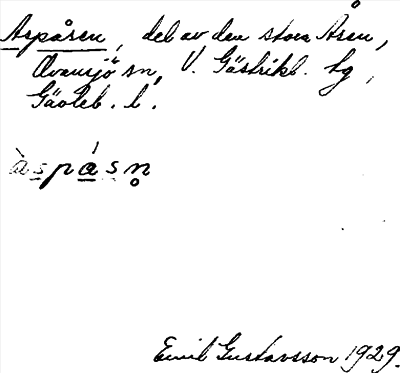 Aspåsen, del av den stora Åsen,
Ovansjö sn, V. Gästrikl. tg,
Gävleb. l.
àspásn̥
Emil Gustavsson 1929.